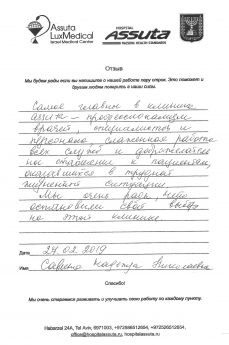 Assuta
LuxMedical
Israel Medical Center
HOSPITAL
ASSUTA
RAISING HEALTH STANDARDS
Отзыв
Мы будем рады если вы напишите о нашей работе пару строк. Это поможет и
другим людям поверить в наши силы.
Самое главное в клинике
Assuta - профессионализм
врачей, специалистов и
персонала, слаженная работа
всех служб и доброжелательное
отношение к пациентам,
оказавшихся в трудной
жизненной ситуации.
Мы очень рады, что
остановили свой выбор
на этой клинике.
Дата 27.02.2019
Имя Савина Надежда Николаевна
Спасибо!
Мы очень стараемся развивать и улучшить свою работу по каждому пункту.
Habarzel 24A, Tel Aviv, 6971003, +972586512654, +972526512654,
office@hospitalassuta.ru, hospitalassuta.ru